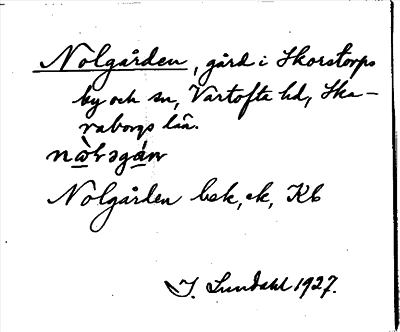 Nolgården, gård i Skorstorps
by och sn, Vartofta hd, Ska-
raborgs län.
Nolgården bsk, ek, Kb
I. Lundahl 1927.